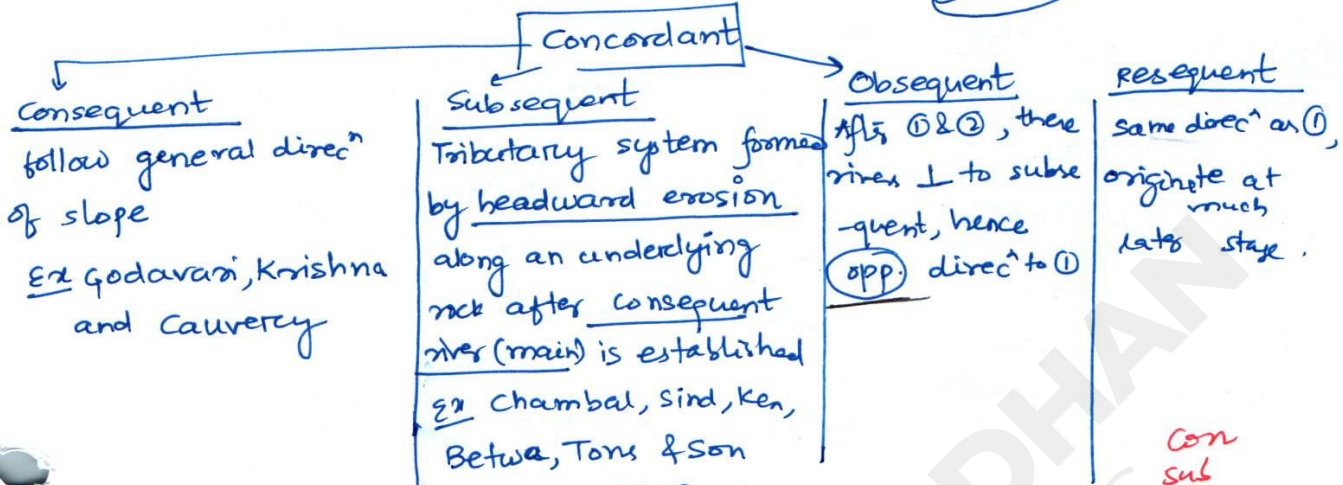 Concordant
Consequent
follow general direcⁿ
of slope
Ex Godavari, Krishna
and Cauvery
Subsequent
Tributary system formed
by headward erosion
along an underlying
rock after consequent
river (main) is established
Ex Chambal, Sind, Ken,
Betwa, Tons & Son
Obsequent
After ① & ②, there
rivers ⊥ to subse
-quent, hence
opp. direcⁿ to ①
Resequent
same direcⁿ as ①,
originate at
much
later stage.
Con
sub
DHAN